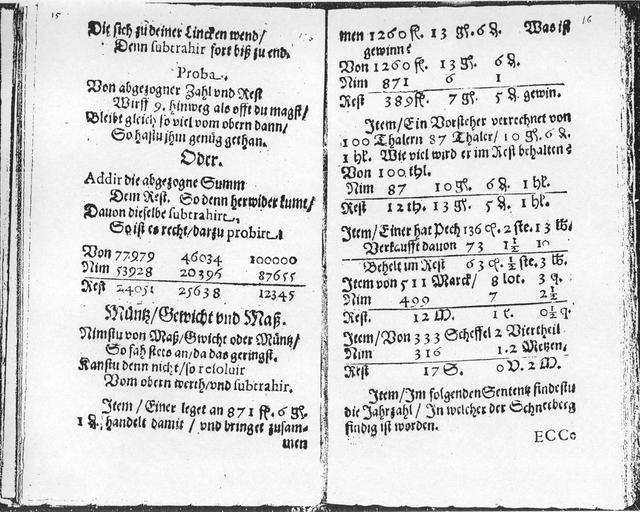 15
Die sich zu deiner Lincken wend/
Denn subtrahir fort biß zu end.
Proba.
Von abgezogner Zahl vnd Rest
Wirff 9. hinweg als offt du magst/
Bleibt gleich so viel vom obern dann/
So hastu jhm genüg gethan.
Oder.
Addir die abgezogne Summ
Dem Rest. So denn herwider kumt/
Dauon dieselbe subtrahirt,
So ist es recht/darzu probirt.
Von 77979 46034 100000
Nim 53928 20396 87655
Rest 24051 25638 12345
Müntz/Gewicht vnd Maß.
Nimstu von Maß/Gwicht oder Müntz/
So fah stets an/da das geringst.
Kanstu denn nicht/so resoluir
Vom obern werth/vnd subtrahir.
Item/Einer leget an 871 fl. 6 gl.
1 ₰. handelt damit/vnd bringet zusam-
men
16
men 1260 fl. 13 gl. 6 ₰. Was ist
gewinn?
Von 1260 fl. 13 gl. 6 ₰.
Nim 871 6 1
Rest 389 fl. 7 gl. 5 ₰ gewin.
Item/Ein Vorsteher verrechnet von
100 Thalern 87 Thaler/10 gl. 6 ₰.
1 hl. Wie viel wird er im Rest behalten?
Von 100 thl.
Nim 87 10 gl. 6 ₰ 1 hl.
Rest 12 th. 13 gl. 5 ₰. 1 hl.
Item/Einer hat Pech 136 c. 2 ste. 13 lb.
Verkaufft dauon 73 1½ 10
Behelt im Rest 63 c. ½ ste. 3 lb.
Item von 511 Marck/ 8 lot. 3 q.
Nim 499 7 2½
Rest. 12 M. 1 l. 0½ q.
Item/Von 333 Scheffel 2 Viertheil
Nim 316 1. 2 Metzen.
Rest 17 S. 0 V. 2 M.
Item/Im folgenden Sententz findestu
die Jahrzahl/ In welcher der Schneeberg
findig ist worden.
ECCe